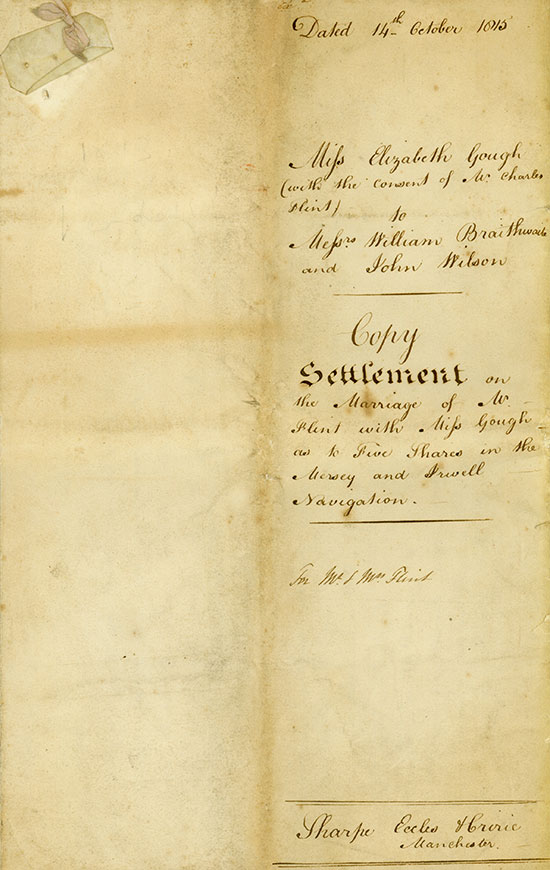 Dated 14th October 1815
Miss Elizabeth Gough
(with the consent of Mr. Charles
Flint)
to
Messrs William Braithwaite
and John Wilson
Copy
Settlement on
the Marriage of Mr
Flint with Miss Gough
as to Five Shares in the
Mersey and Irwell
Navigation.
For Mr. & Mrs. Flint
Sharpe Eccles &
Manchester.